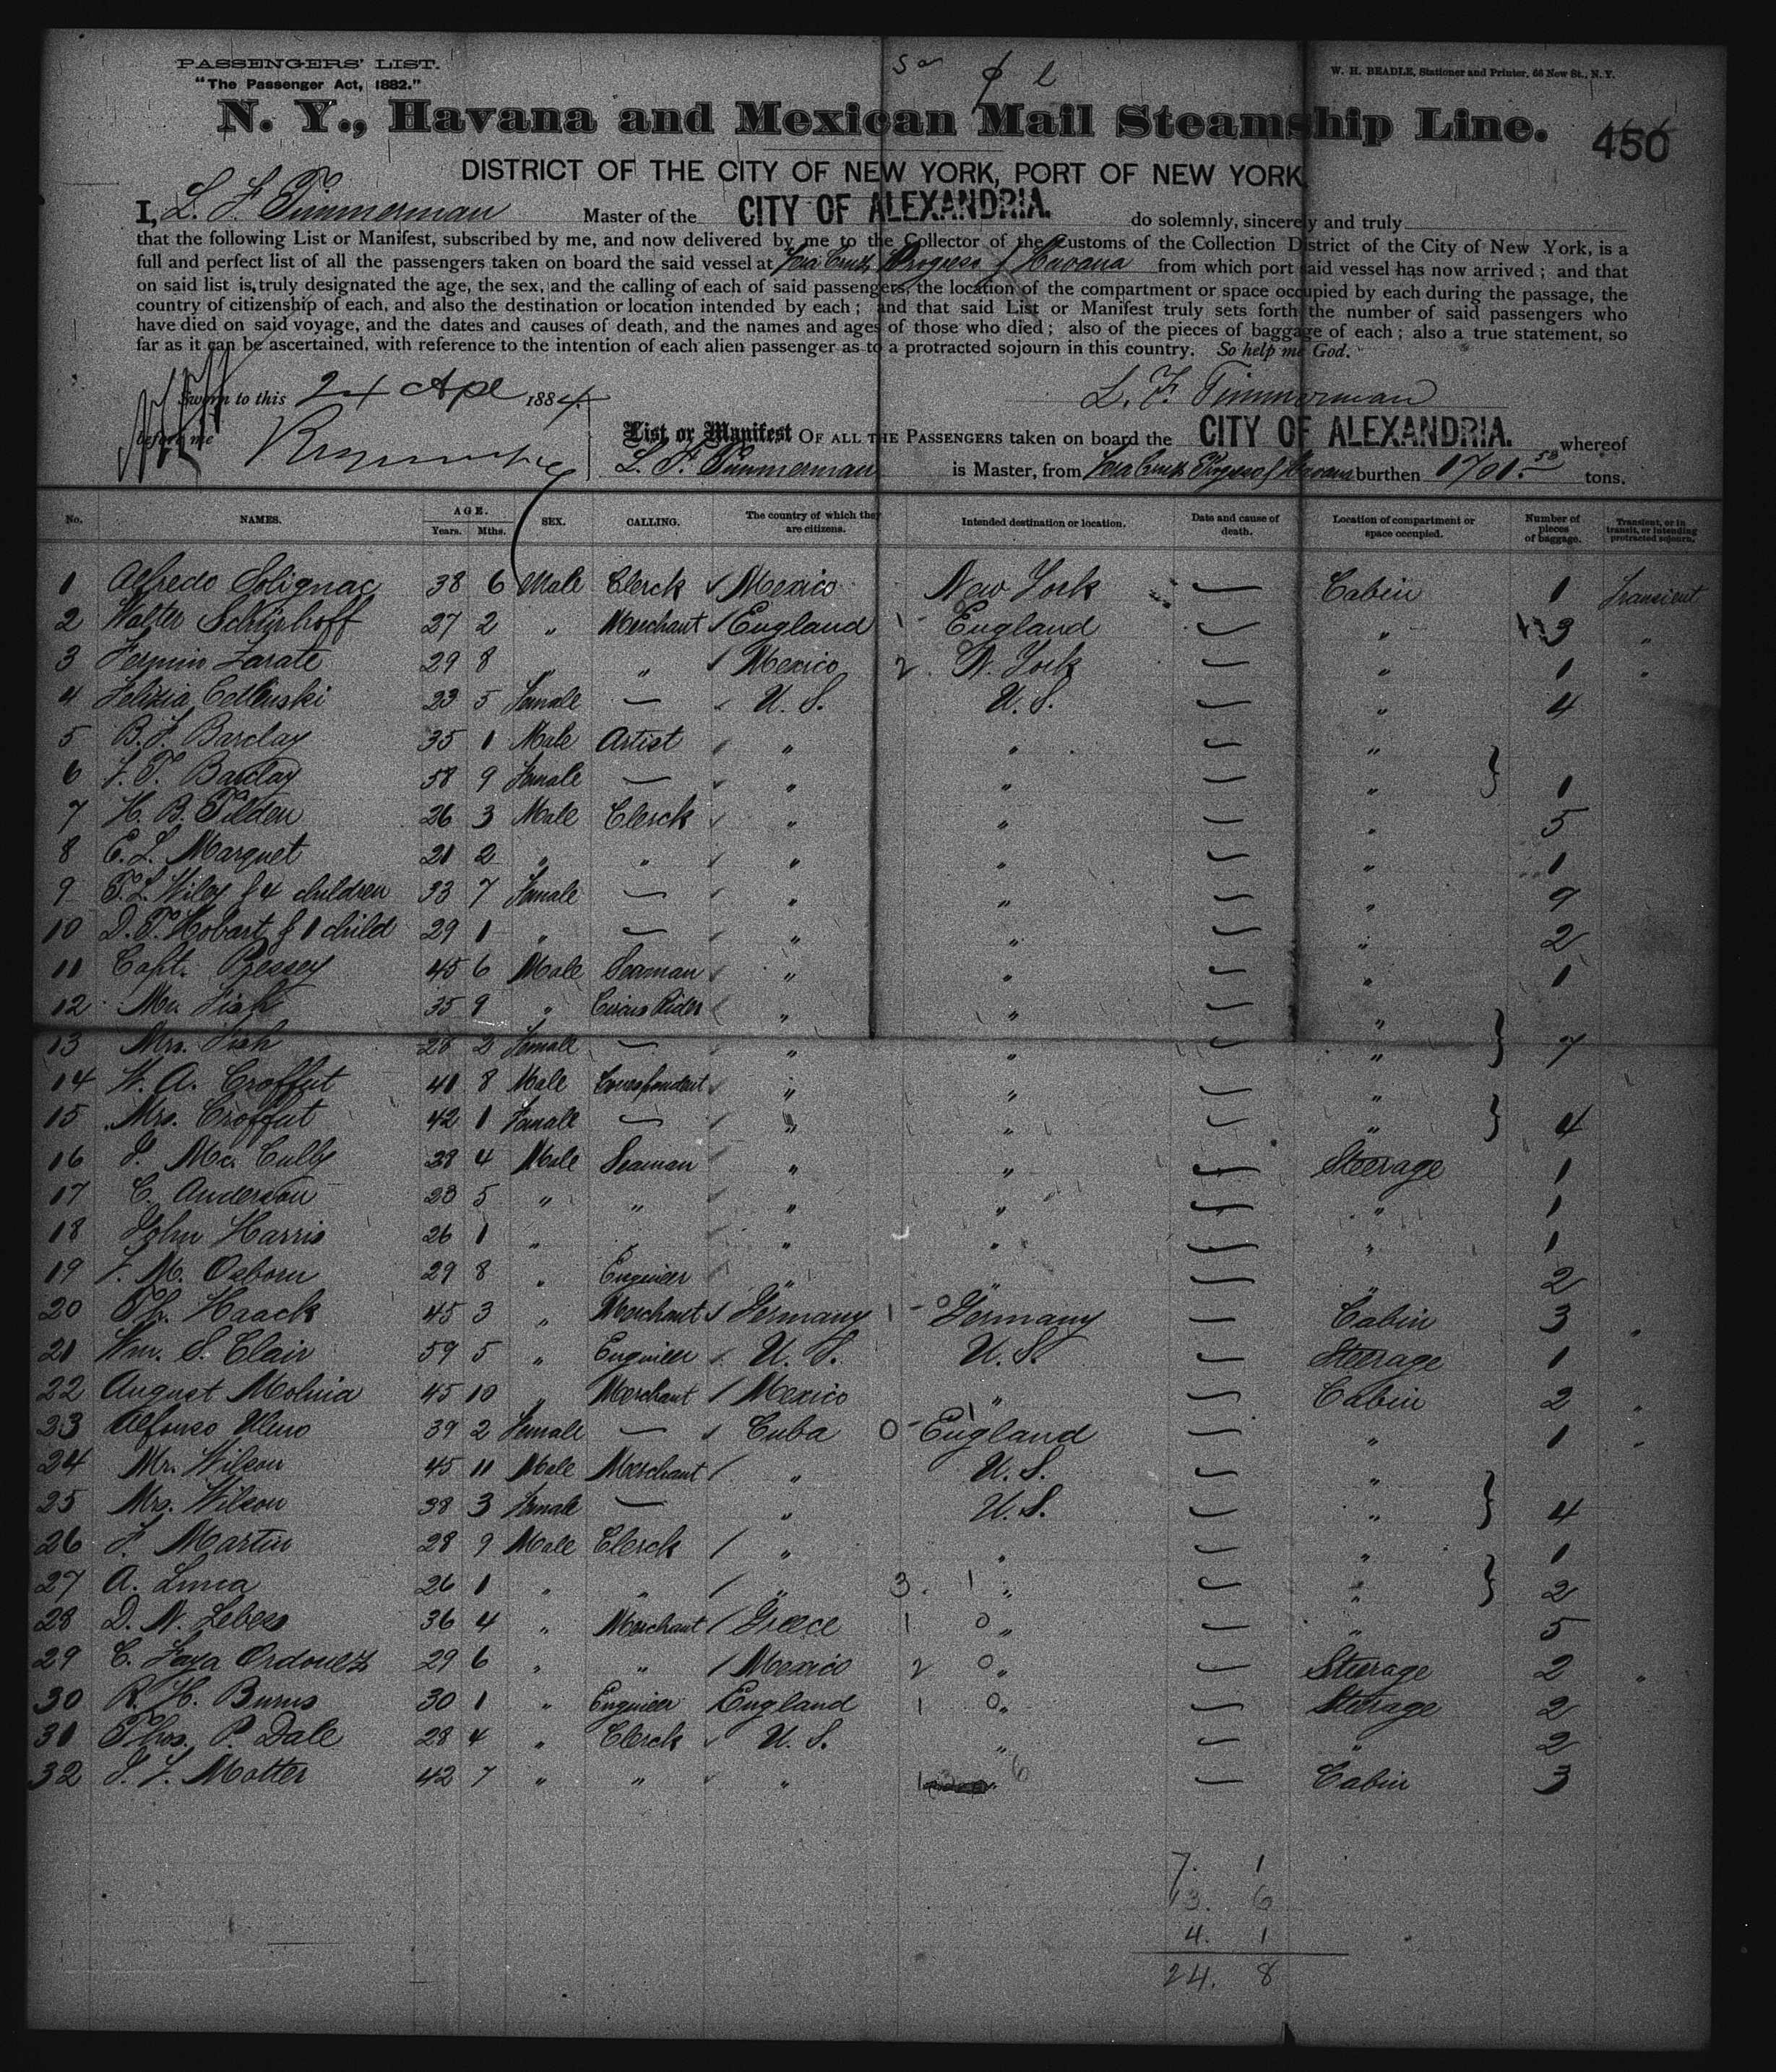 PASSENGERS' LIST.
"The Passenger Act, 1882."
W. H. BEADLE, Stationer and Printer, 66 New St., N. Y.
N. Y., Havana and Mexican Mail Steamship Line.
450
DISTRICT OF THE CITY OF NEW YORK, PORT OF NEW YORK,
I, L. F. Timmerman Master of the CITY OF ALEXANDRIA. do solemnly, sincerely and truly
that the following List or Manifest, subscribed by me, and now delivered by me to the Collector of the Customs of the Collection District of the City of New York, is a
full and perfect list of all the passengers taken on board the said vessel at Vera Cruz, Progreso & Havana from which port said vessel has now arrived; and that
on said list is truly designated the age, the sex, and the calling of each of said passengers, the location of the compartment or space occupied by each during the passage, the
country of citizenship of each, and also the destination or location intended by each; and that said List or Manifest truly sets forth the number of said passengers who
have died on said voyage, and the dates and causes of death, and the names and ages of those who died; also of the pieces of baggage of each; also a true statement, so
far as it can be ascertained, with reference to the intention of each alien passenger as to a protracted sojourn in this country. So help me God.
Sworn to this 24 Apl 1884. L. F. Timmerman
before me
List or Manifest OF ALL THE PASSENGERS taken on board the CITY OF ALEXANDRIA. whereof
L. F. Timmerman is Master, from Vera Cruz Progreso & Havana burthen 1701.58 tons.
No. NAMES. AGE. Years. Mths. SEX. CALLING. The country of which they are citizens. Intended destination or location. Date and cause of death. Location of compartment or space occupied. Number of pieces of baggage. Transient, or in transit, or intending protracted sojourn.
1 Alfredo Solignac 38 6 Male Clerck Mexico New York — Cabin 1 Transient
2 Walter Schürhoff 27 2 " Merchant England 1 England — " 3 "
3 Fermin Zarate 29 8 " " Mexico 2 N. York — " 1 "
4 23 5 Female — U. S. U. S. — " 4
5 B. F. Barclay 35 1 Male Artist " " — "
6 F. T. Barclay 58 9 Female — " " — " 1
7 H. B. Tilden 26 3 Male Clerck " " — " 5
8 E. L. Marquet 21 2 " " " " — " 1
9 T. L. Wiley & 4 children 33 7 Female — " " — " 9
10 D. T. Hobart & 1 child 29 1 " — " " — " 2
11 Capt. Bessey 45 6 Male Seaman " " — " 1
12 Mr. Fish 35 9 " Circus Rider " " — "
13 Mrs. Fish 28 2 Female — " " — " 7
14 W. A. Croffut 41 8 Male Correspondent " " — "
15 Mrs. Croffut 42 1 Female — " " — " 4
16 Mc. Cully 38 4 Male Seaman " " — Steerage 1
17 C. Anderson 23 5 " " " " — " 1
18 John Harris 26 1 " " " " — " 1
19 F. M. Osborn 29 8 " Engineer " " — " 2
20 Th. Haack 45 3 " Merchant Germany 1 0 Germany — Cabin 3 "
21 Wm. S. Clair 59 5 " Engineer U. S. U. S. — Steerage 1
22 August Molina 45 10 " Merchant Mexico " — Cabin 2 "
23 Alfonso 39 2 Female — Cuba 0 England — " 1 "
24 Mr. Wilson 45 11 Male Merchant " U. S. — "
25 Mrs. Wilson 38 3 Female — " U. S. — " 4
26 F. Martin 28 9 Male Clerck " " — " 1
27 A. Luna 26 1 " " " 3. 1 " — " 2
28 D. N. 36 4 " Merchant Greece 1 0 " — " 5
29 C. Faya Ordonez 29 6 " " Mexico 2 0 " — Steerage 2 "
30 R. H. Burns 30 1 " Engineer England 1 0 " — Steerage 2
31 Thos. P. Dale 28 4 " Clerck U. S. " — " 2
32 J. F. Motter 42 7 " " " " 6 — Cabin 3
7. 1
13. 6
4. 1
24. 8